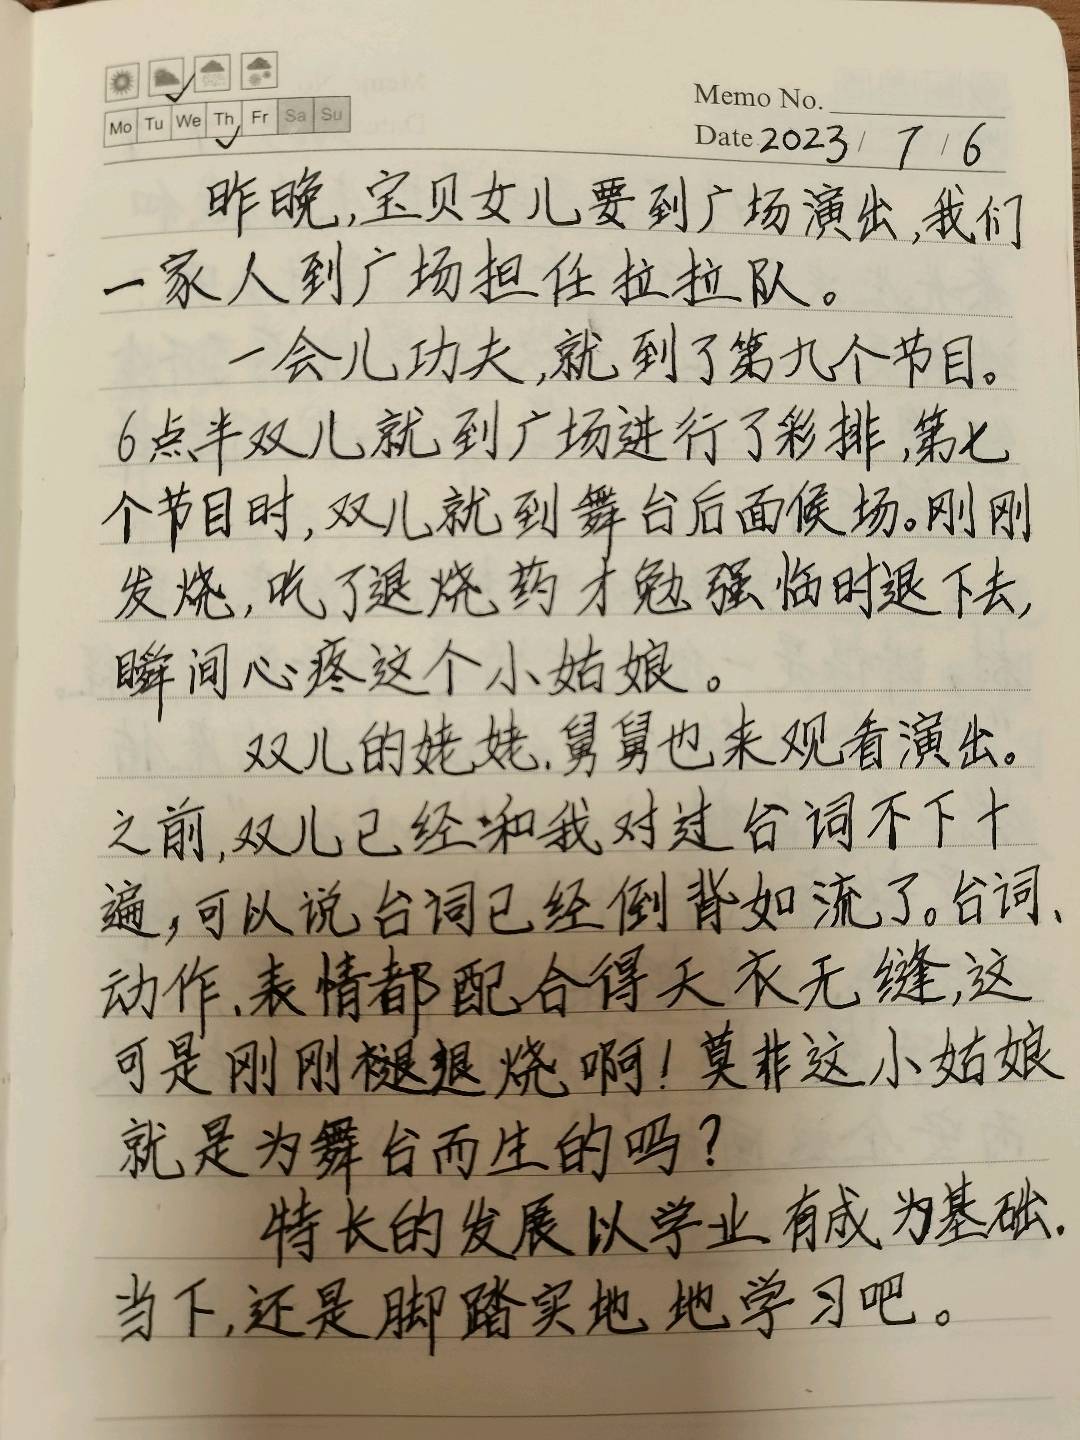 Mo Tu We Th Fr Sa Su
Memo No.
Date 2023 / 7 / 6
昨晚,宝贝女儿要到广场演出,我们
一家人到广场担任拉拉队。
一会儿功夫,就到了第九个节目。
6点半双儿就到广场进行了彩排,第七
个节目时,双儿就到舞台后面候场。刚刚
发烧,吃了退烧药才勉强临时退下去,
瞬间心疼这个小姑娘。
双儿的姥姥、舅舅也来观看演出。
之前,双儿已经和我对过台词不下十
遍,可以说台词已经倒背如流了。台词、
动作、表情都配合得天衣无缝,这
可是刚刚退烧啊!莫非这小姑娘
就是为舞台而生的吗?
特长的发展以学业有成为基础.
当下,还是脚踏实地地学习吧。